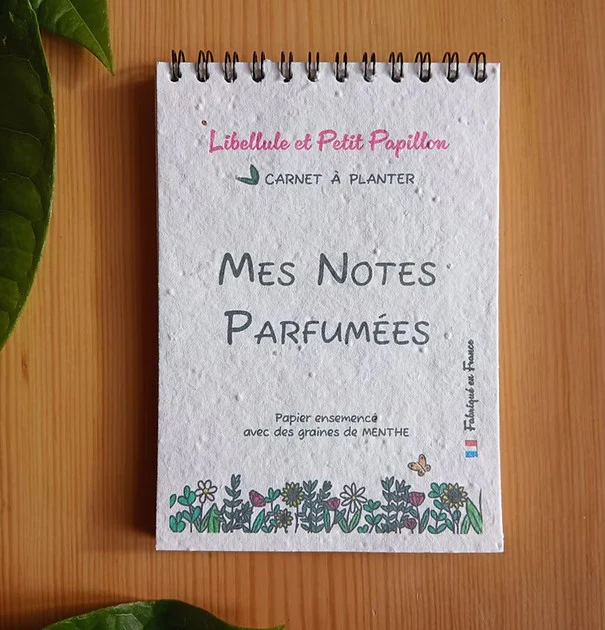 Libellule et Petit Papillon
CARNET À PLANTER
MES NOTES
PARFUMÉES
Papier ensemencé
avec des graines de MENTHE
Fabriqué en France